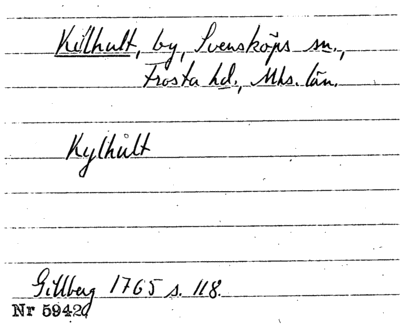 Killhult, by, Svensköps sn.,
Frosta hd., Mhs. län.
Kylhult
Gillberg 1765 s. 118.
Nr 5942